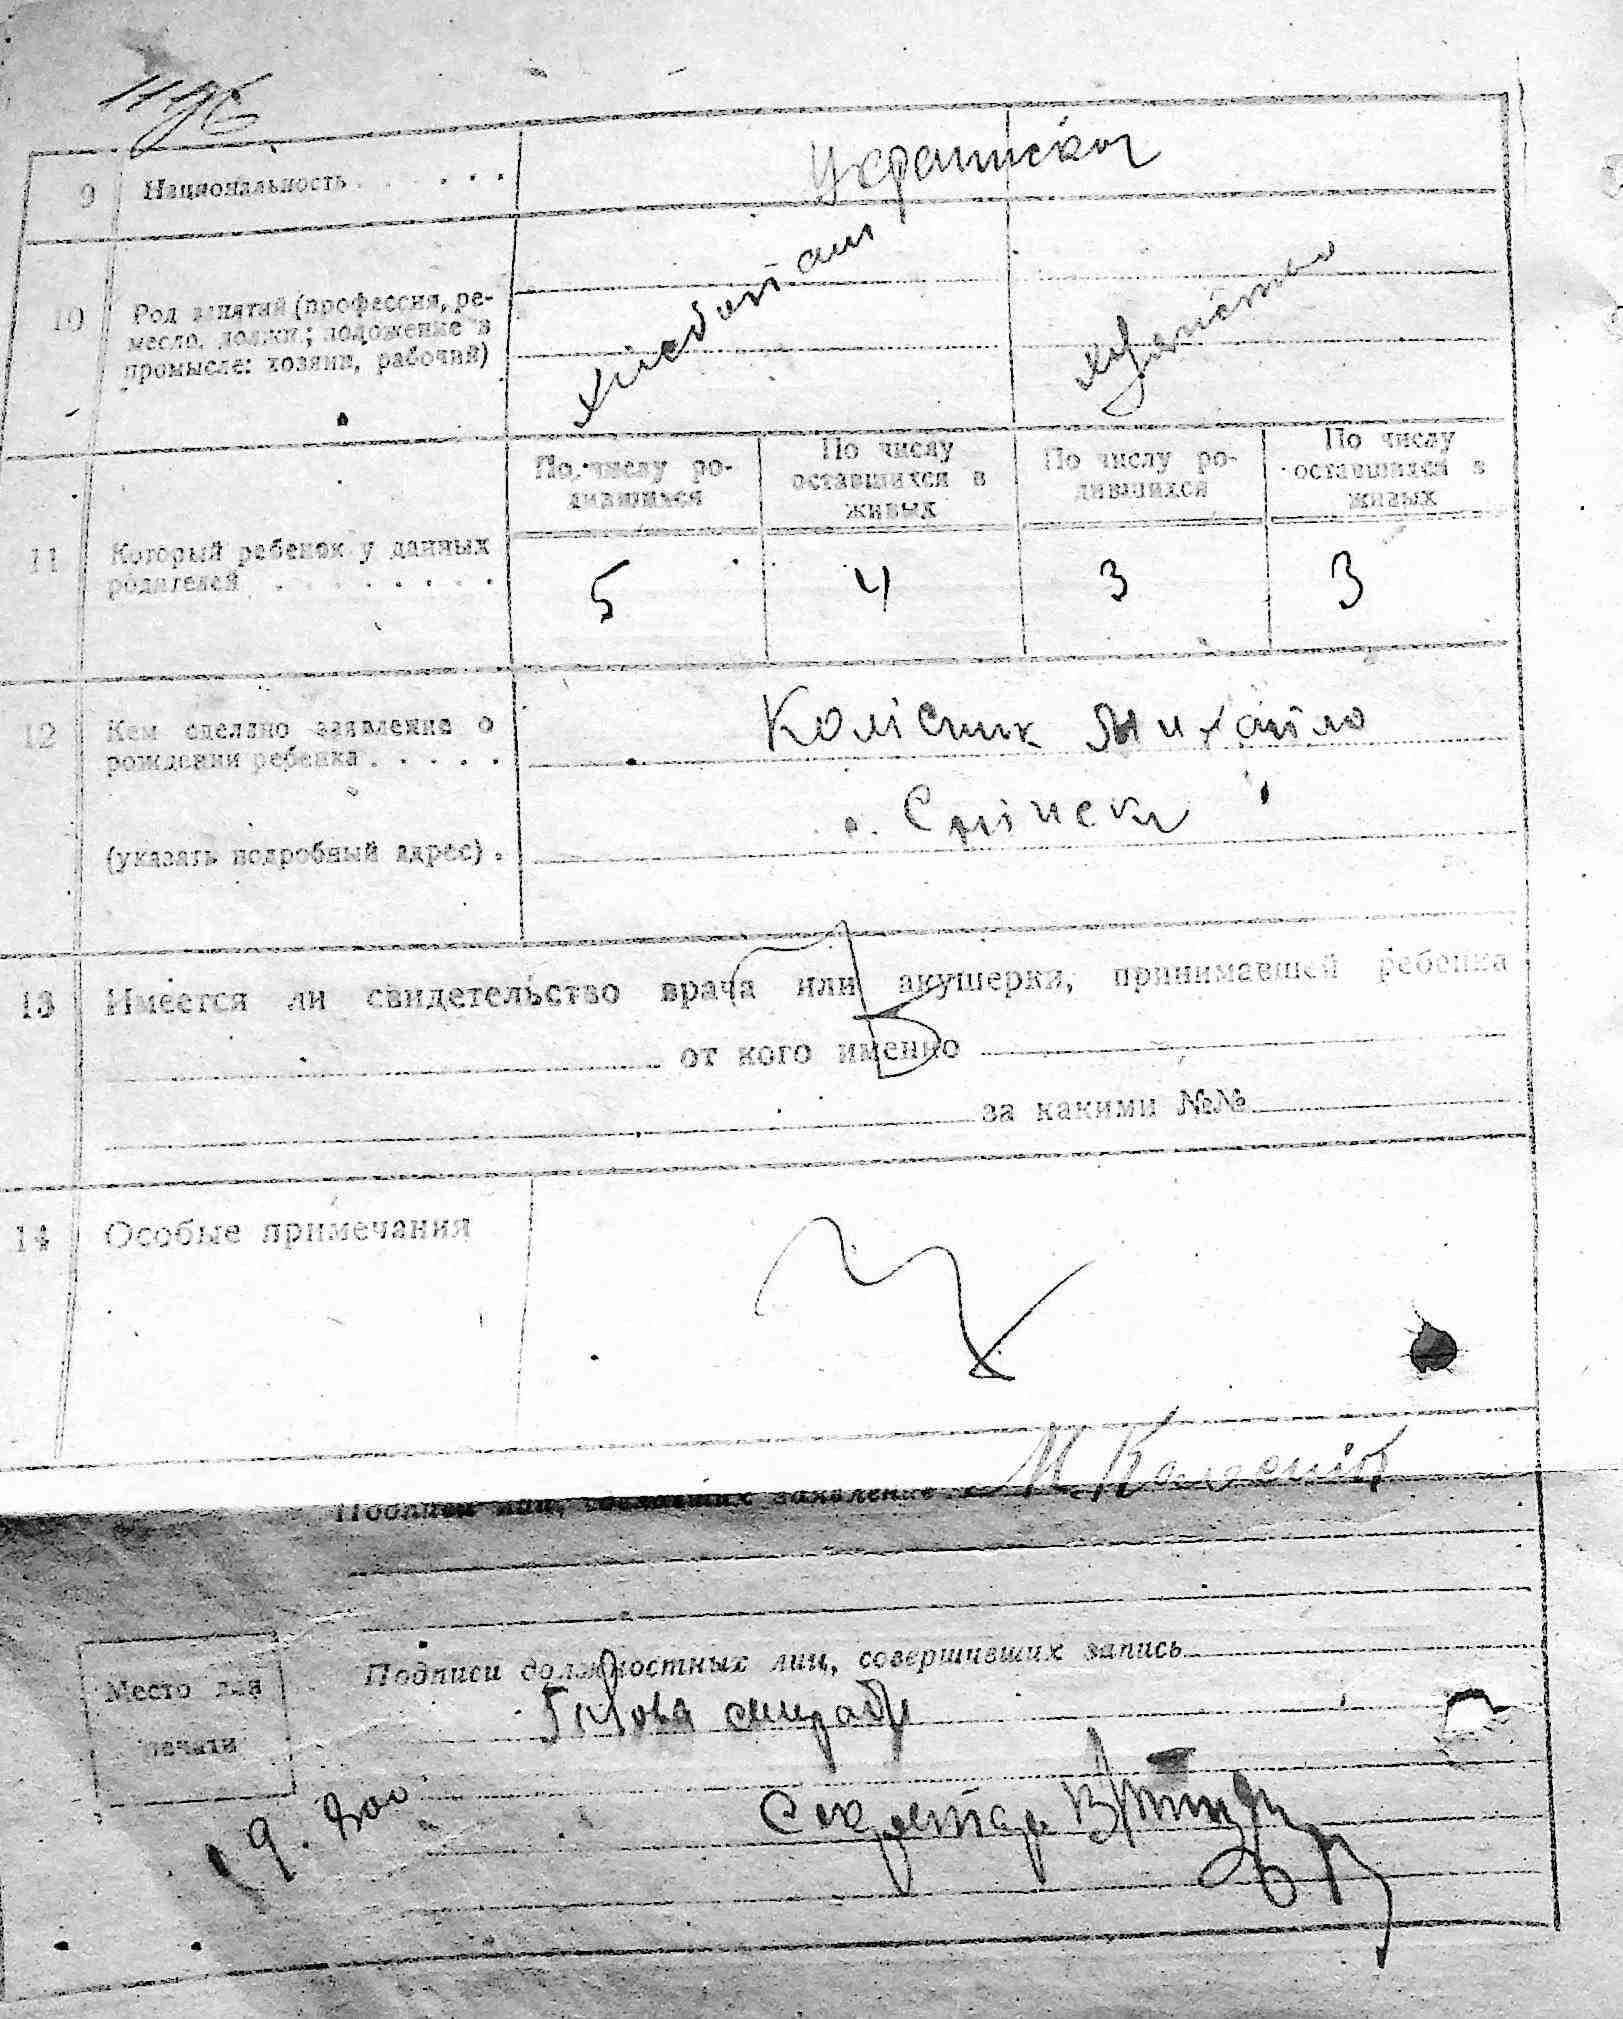 9 Национальность . . . . . . Украинская
10 Род занятий (профессия, ре-
месло, должн.; положение в
промысле: хозяин, рабочий)
По числу ро-
дившихся
По числу
оставшихся в
живых
По числу ро-
дившихся
По числу
оставшихся в
живых
11 Который ребенок у данных
родителей . . . . . . . .
5 4 3 3
12 Кем сделано заявление о
рождении ребенка . . . . .
Колісник Михайло
(указать подробный адрес) .
13 Имеется ли свидетельство врача или акушерки, принимавшей ребенка
от кого именно
за какими №№
14 Особые примечания
Подписи лиц, сделавших заявление М. Колесник
Подписи должностных лиц, совершивших запись
Место для
печати
Голова сільради
Секретар